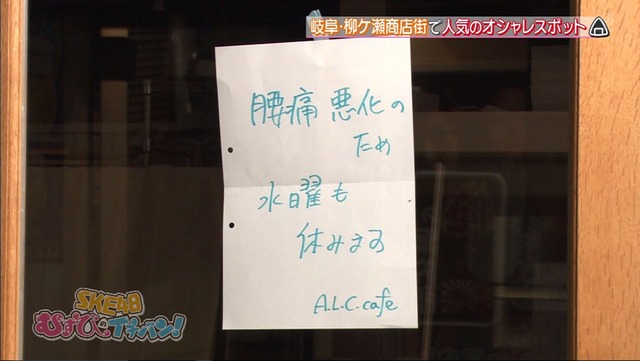 岐阜・柳ケ瀬商店街で人気のオシャレスポット
腰痛悪化の
ため
水曜も
休みます
A.L.C.cafe
SKE48
むすびのイチバン!